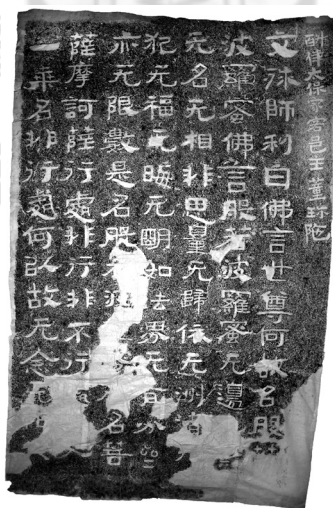 斛律太保家客邑主董珍陀
文殊師利白佛言世尊何故名般
波羅蜜佛言般若波羅蜜无邊
无名无相非思量无歸依无洲
犯无福无晦无明如法界无有分
亦无限數是名般波名菩
薩摩訶薩行處非行非不行入
一乘名非行處何以故无念